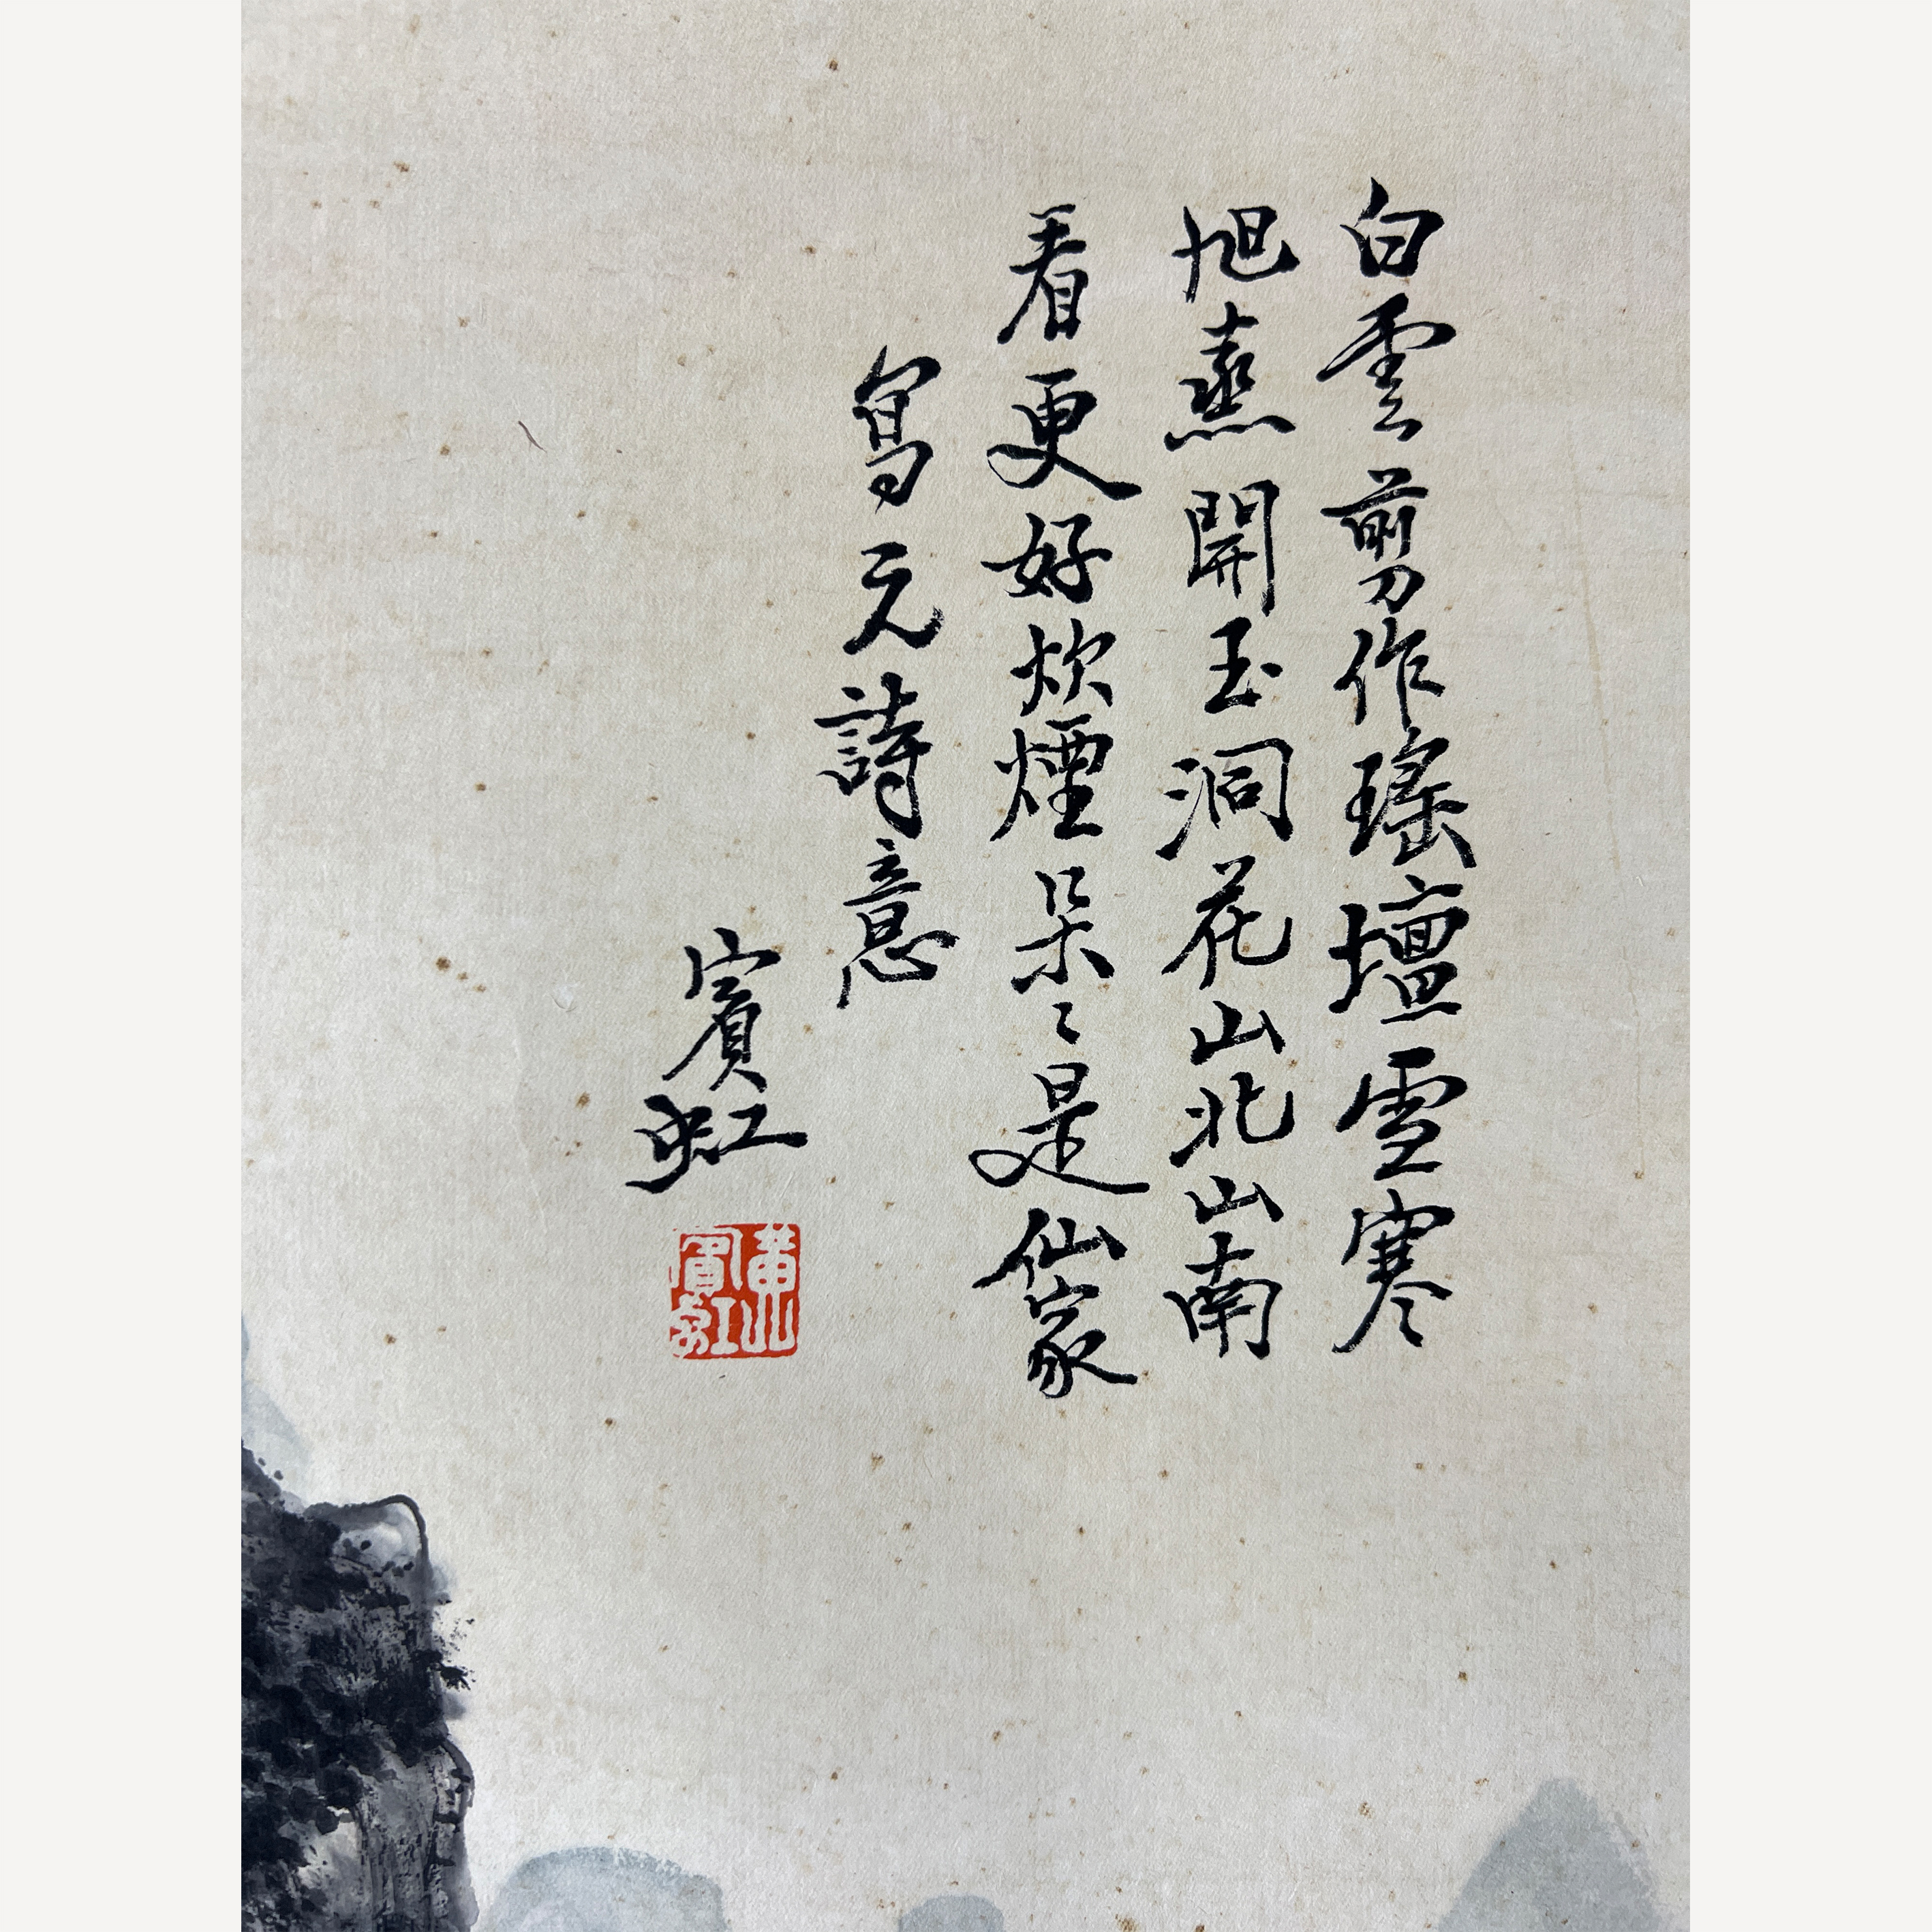 白雲剪作瑤壇雪寒
旭蒸開玉洞花山北山南
看更好炊煙朵〻是仙家
寫元詩意
賓虹
黃賓虹